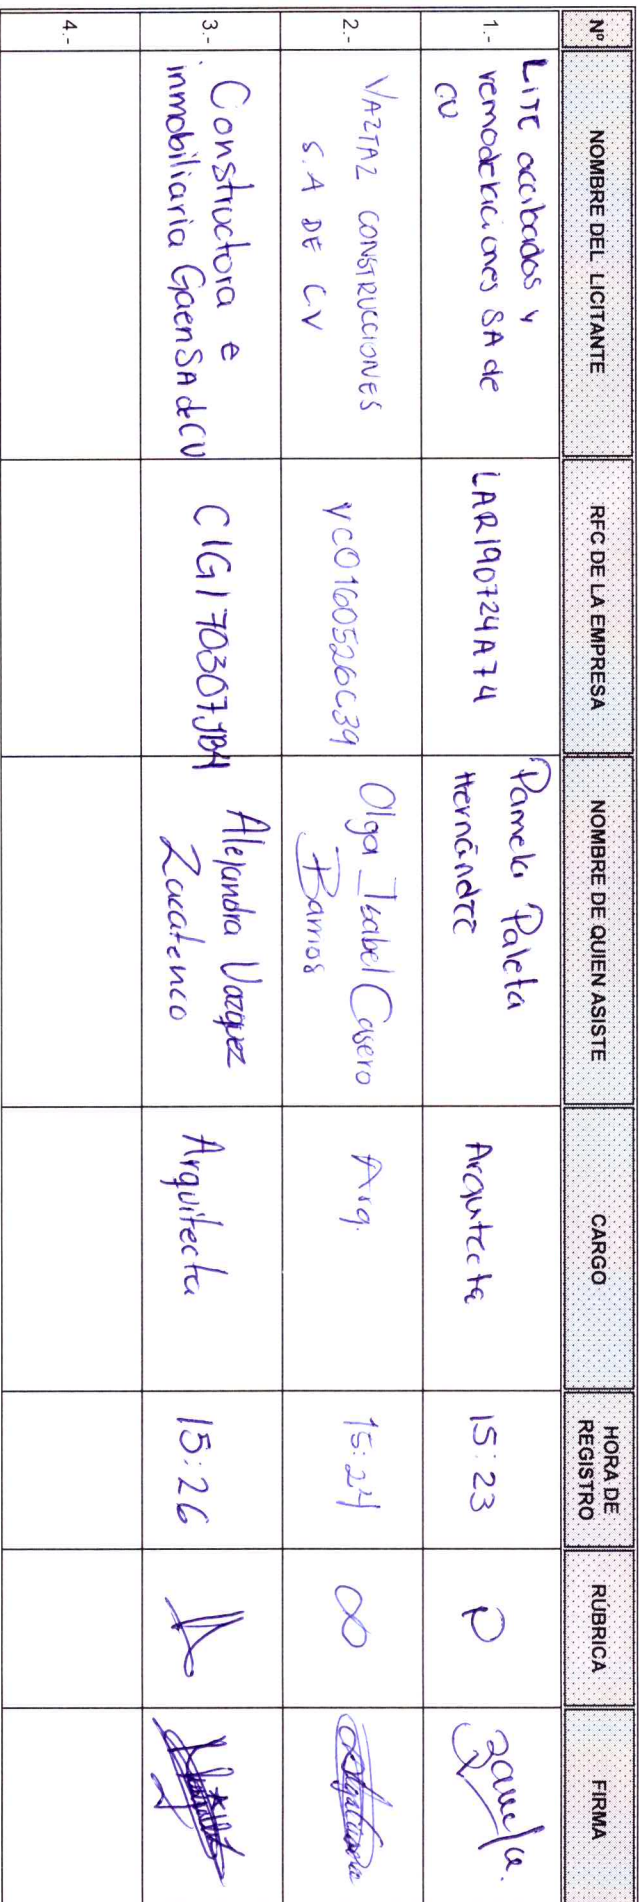 Nº NOMBRE DEL LICITANTE RFC DE LA EMPRESA NOMBRE DE QUIEN ASISTE CARGO HORA DE REGISTRO RÚBRICA FIRMA
1.-
LITE acabados y
remodelaciones SA de
CV
LAR190724A74
Pamela Paleta
Hernández
Arquitecta
15:23
P
2.-
VAZTAZ CONSTRUCCIONES
S.A DE C.V
VCO160526C39
Olga Isabel Casero
Barrios
Arq.
15:24
3.-
Constructora e
inmobiliaria Gaen SA de CV
CIG170307JB4
Alejandra Vazquez
Zacatenco
Arquitecta
15:26
4.-